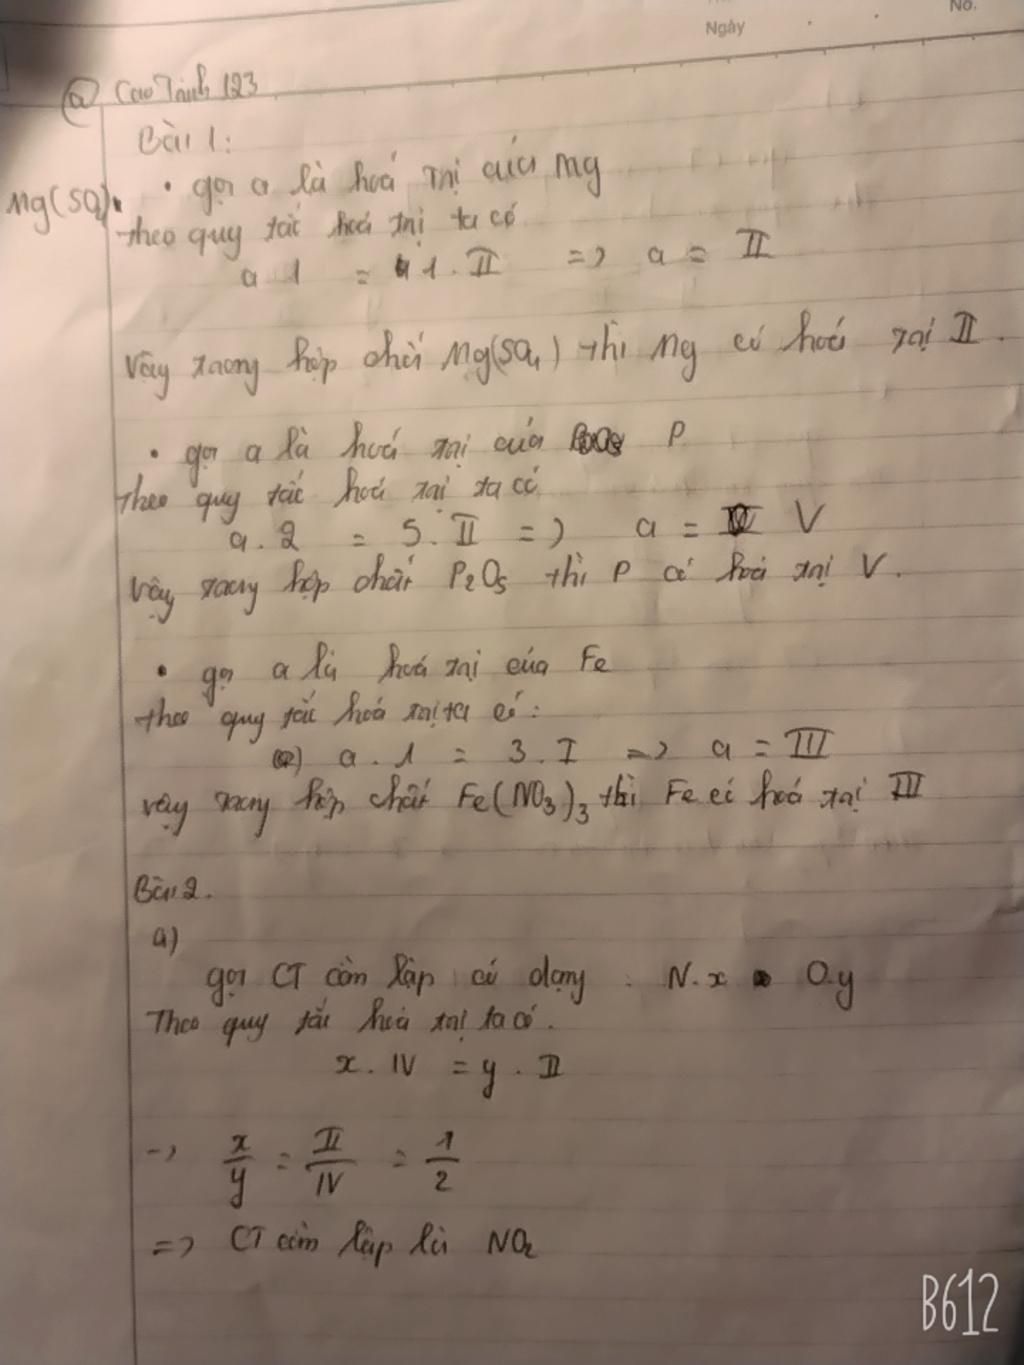 No.
Ngày
@ Cao Trinh 123
Bài 1:
• gọi a là hoá trị của Mg
Mg(SO4).
theo quy tắc hoá trị ta có
a 1 = 1. II => a = II
Vậy trong hợp chất Mg(SO4) thì Mg có hoá trị II.
• gọi a là hoá trị của P
theo quy tắc hoá trị ta có
a. 2 = 5. II => a = V
vậy trong hợp chất P2O5 thì P có hoá trị V.
• gọi a là hoá trị của Fe
theo quy tắc hoá trị ta có:
a. 1 = 3. I => a = III
vậy trong hợp chất Fe(NO3)3 thì Fe có hoá trị III
Bài 2.
a)
gọi CT cần lập có dạng : N.x O.y
Theo quy tắc hoá trị ta có.
x. IV = y. II
-> x/y = II/IV = 1/2
=> CT cần lập là NO2
B612